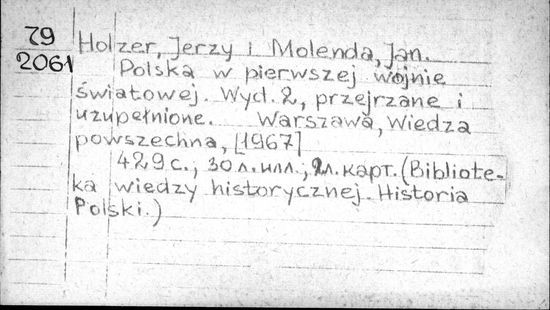 79
2061
Holzer, Jerzy i Molenda, Jan.
Polska w pierwszej wojnie
światowej. Wyd. 2, przejrzane i
uzupełnione. Warszawa, Wiedza
powszechna, [1967]
429 с.; 30 л. илл.; 2л. карт. (Bibliote-
ka wiedzy historycznej. Historia
Polski.)